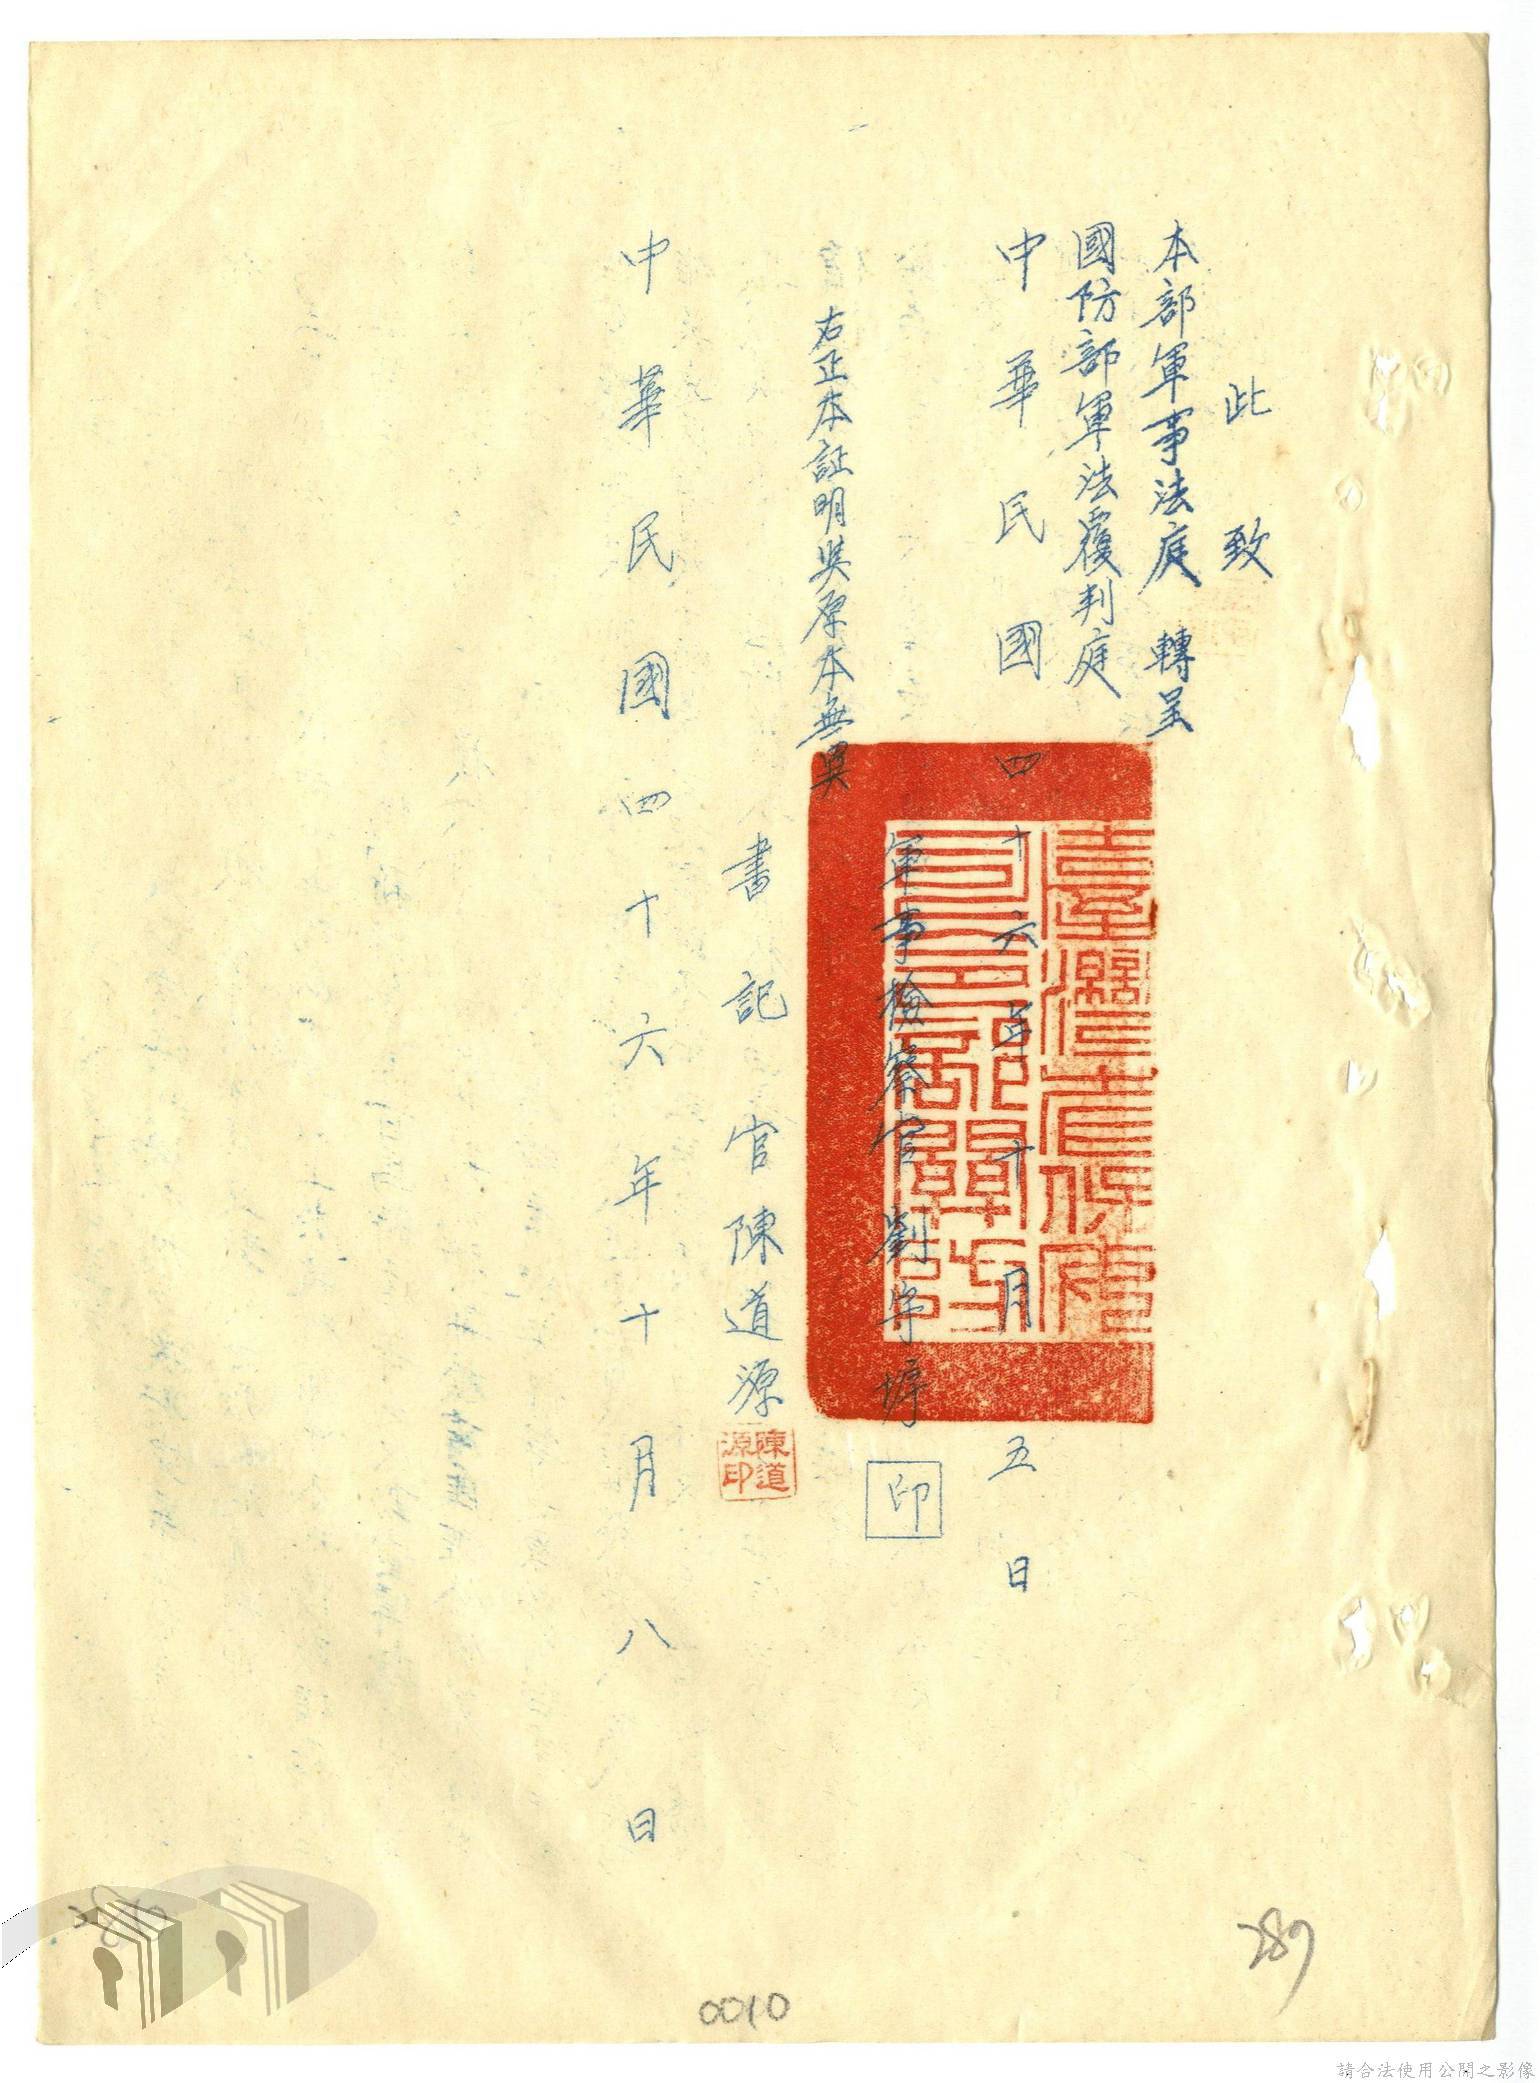 此致
本部軍事法庭　轉呈
國防部軍法覆判庭
中華民國四十六年十月五日
軍事檢察官劉宇墇
印
右正本証明與原本無異
書記官陳道源
陳道源印
中華民國四十六年十月八日
289
0010
請合法使用公開之影像